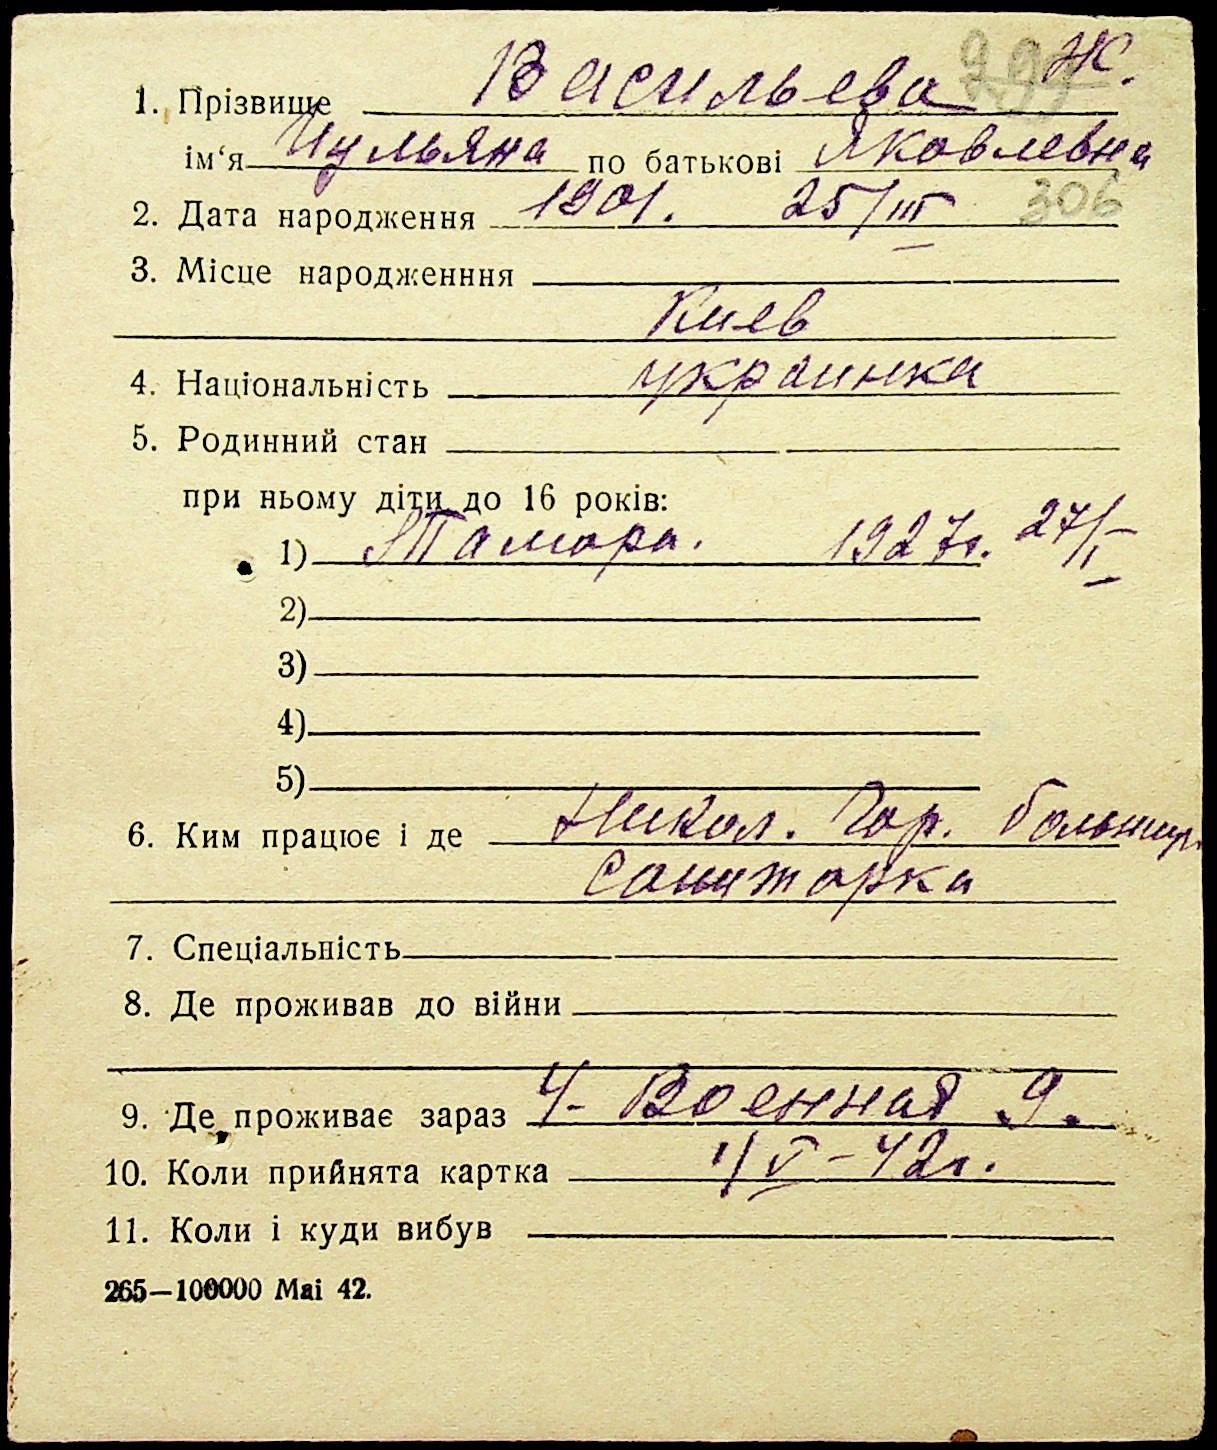 299 Ж.
1. Прізвище Васильева
ім‘я Иульяна по батькові Яковлевна
2. Дата народження 1901. 25/III 306
3. Місце народженння
Киев
4. Національність украинка
5. Родинний стан
при ньому діти до 16 років:
1) Тамара. 1927г. 27/I
2)
3)
4)
5)
6. Ким працює і де Никол. Гор. больниц.
санитарка
7. Спеціальність
8. Де проживав до війни
9. Де проживає зараз 4-Военная 9.
10. Коли прийнята картка 1/V-42г.
11. Коли і куди вибув
265—100000 Маі 42.